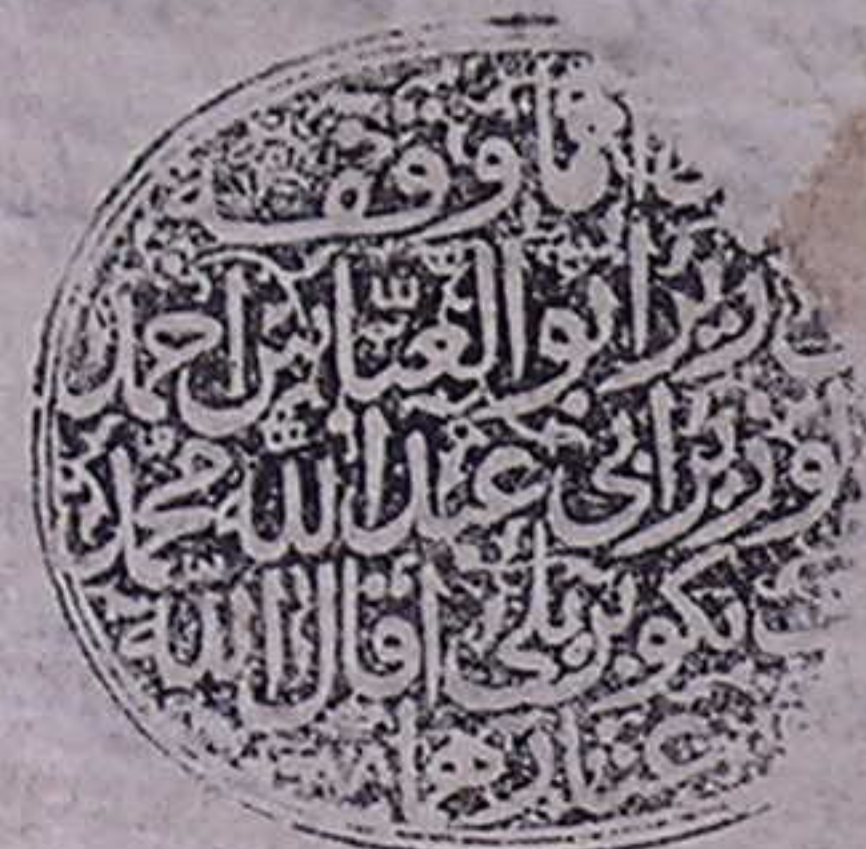 مما وقف
الوزير ابو العباس احمد
الوزير ابي عبد الله محمد
عرف بكوبريلي اقال الله
عثارهما